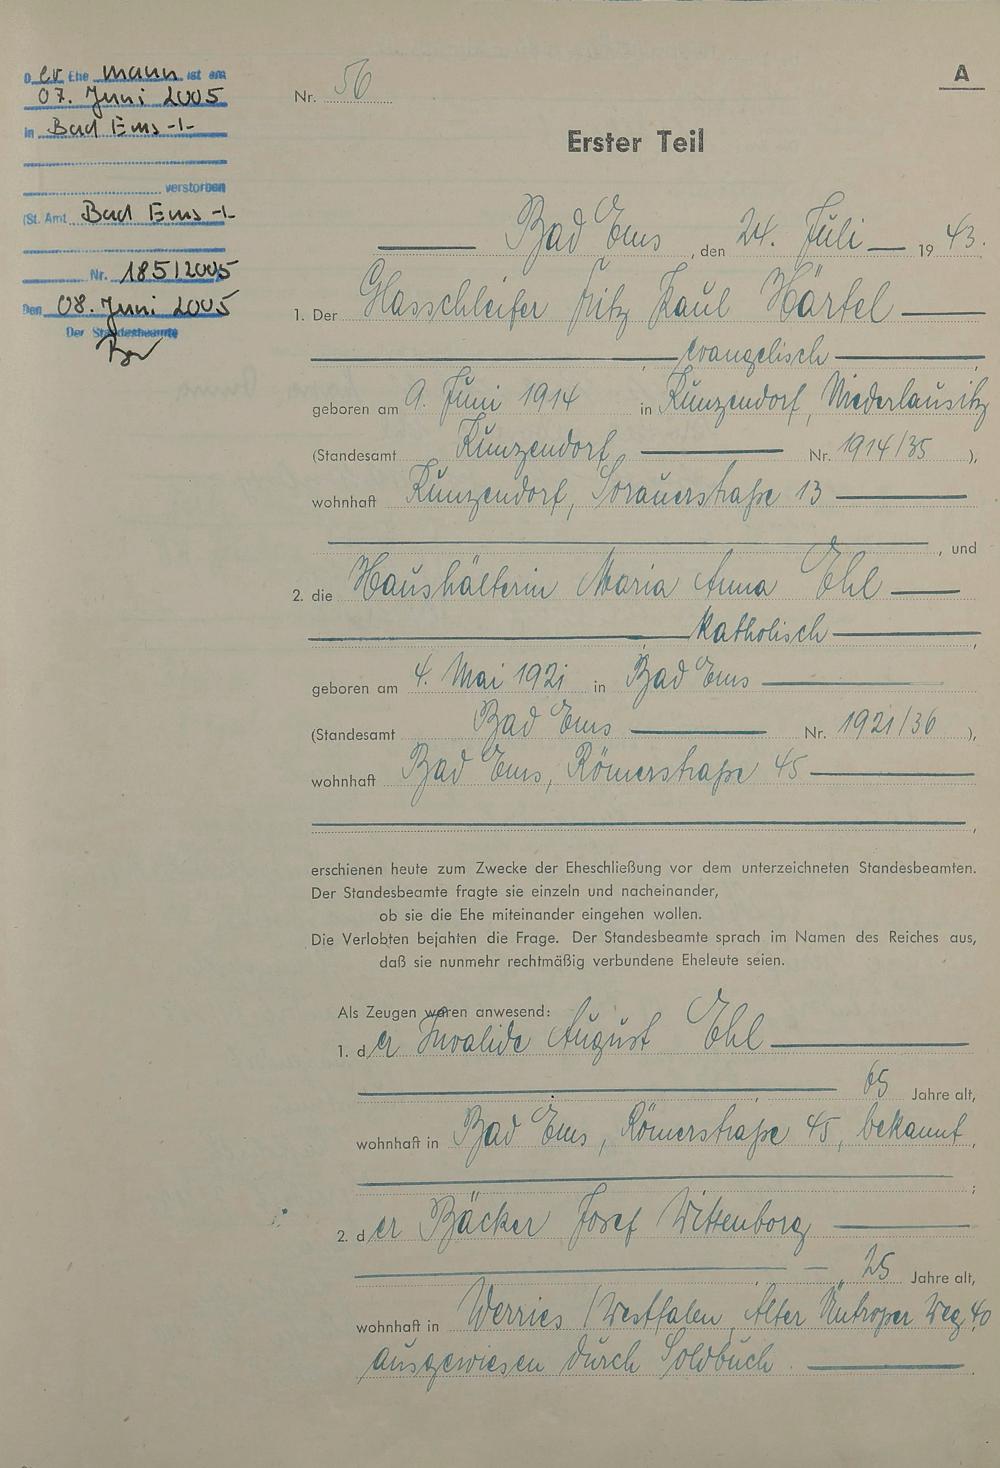 Der Ehe mann ist am
07. Juni 2005
in Bad Ems -1-
verstorben
(St. Amt Bad Ems -1-
Nr. 185/2005
Den 08. Juni 2005
Der Standesbeamte
A
Nr. 56
Erster Teil
Bad Ems, den 24. Juli 1943.
1. Der Glasschleifer Fritz Paul Härtel
evangelisch,
geboren am 9. Juni 1914 in Kunzendorf, Niederlausitz
(Standesamt Kunzendorf Nr. 1914/35),
wohnhaft Kunzendorf, Sorauerstraße 13
, und
2. die Haushälterin Maria Anna Ehl
katholisch,
geboren am 4. Mai 1921 in Bad Ems
(Standesamt Bad Ems Nr. 1921/36),
wohnhaft Bad Ems, Römerstraße 45
,
erschienen heute zum Zwecke der Eheschließung vor dem unterzeichneten Standesbeamten.
Der Standesbeamte fragte sie einzeln und nacheinander,
ob sie die Ehe miteinander eingehen wollen.
Die Verlobten bejahten die Frage. Der Standesbeamte sprach im Namen des Reiches aus,
daß sie nunmehr rechtmäßig verbundene Eheleute seien.
Als Zeugen waren anwesend:
1. der Invalide August Ehl
, 65 Jahre alt,
wohnhaft in Bad Ems, Römerstraße 45, bekannt,
;
2. der Bäcker Josef Wittenborg
, 25 Jahre alt,
wohnhaft in Werries/Westfalen, Alter Üntroper Weg 40
ausgewiesen durch Soldbuch.